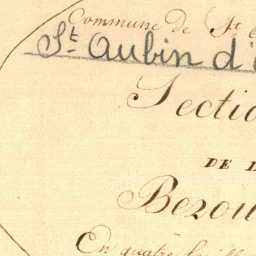 Commune de St
St Aubin d'
Sectio
DE L
Bezou
En quatre feuill